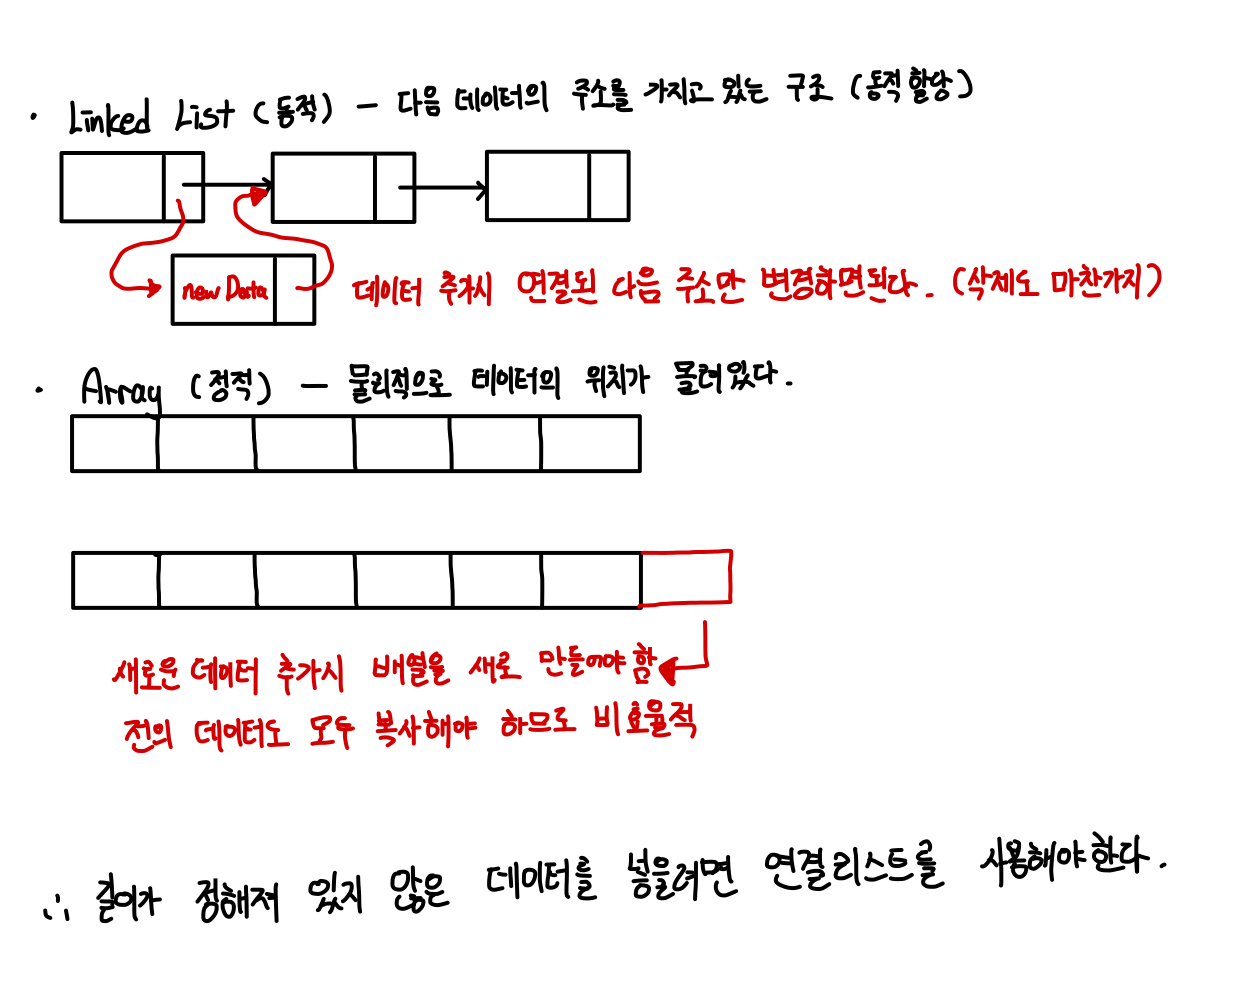 · Linked List (동적) - 다음 데이터의 주소를 가지고 있는 구조 (동적할당)
new Data
데이터 추가시 연결된 다음 주소만 변경하면된다. (삭제도 마찬가지)
· Array (정적) - 물리적으로 데이터의 위치가 몰려있다.
새로운 데이터 추가시 배열을 새로 만들어야 함
전의 데이터도 모두 복사해야 하므로 비효율적
∴ 길이가 정해져 있지 않은 데이터를 넣을려면 연결리스트를 사용해야한다.